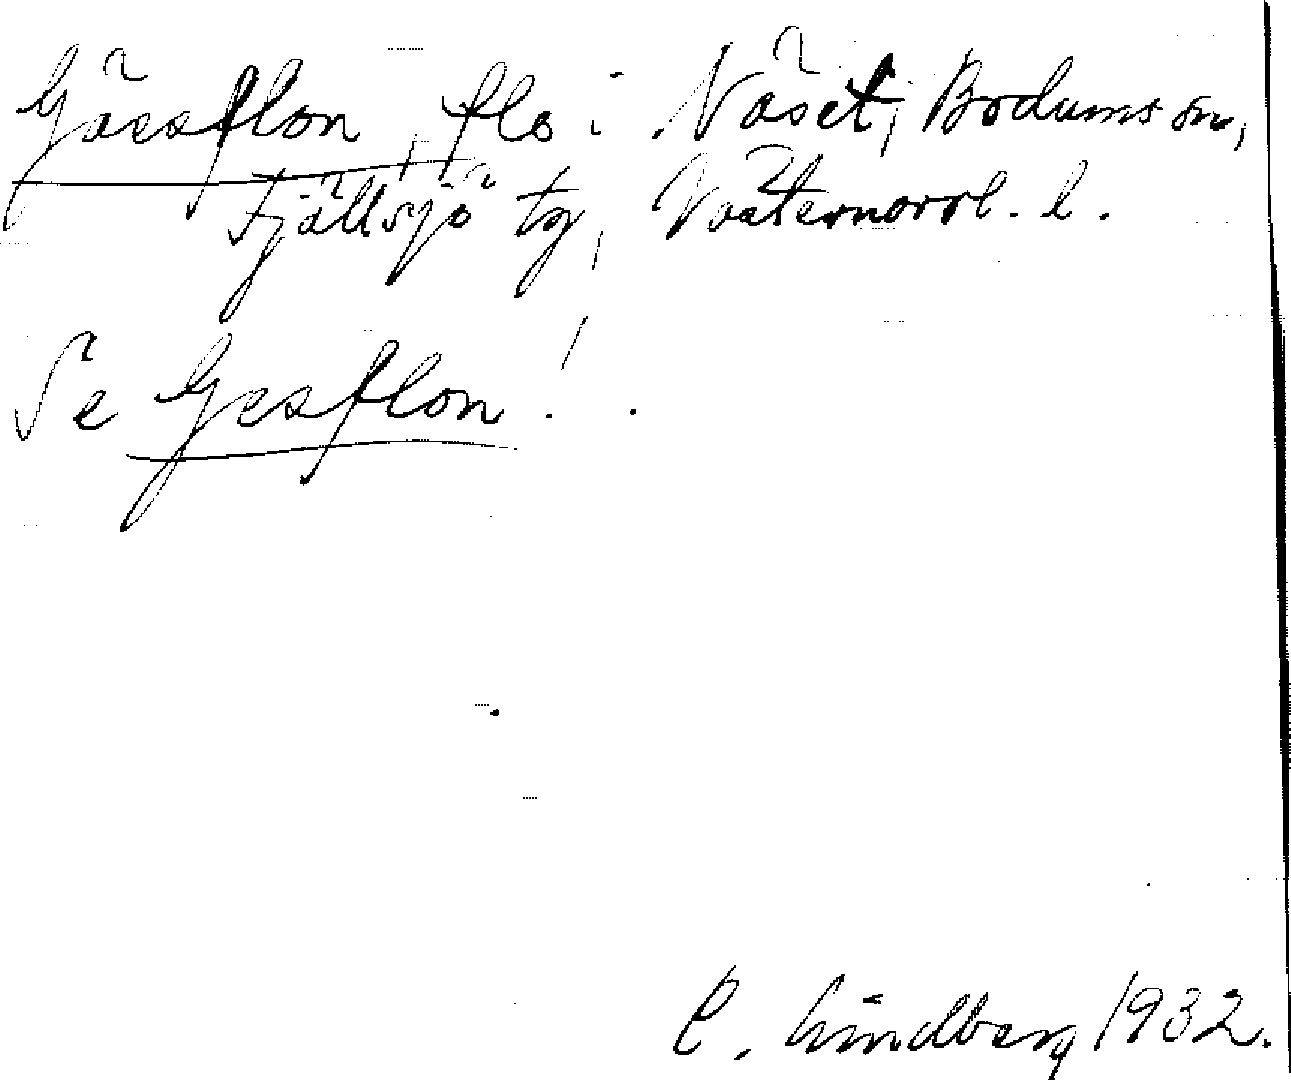 Gässflon, flo i Näset, Bodums sn,
Fjällsjö tg, Västernorrl. l.
Se Gesflon!
C. Lindberg 1932.